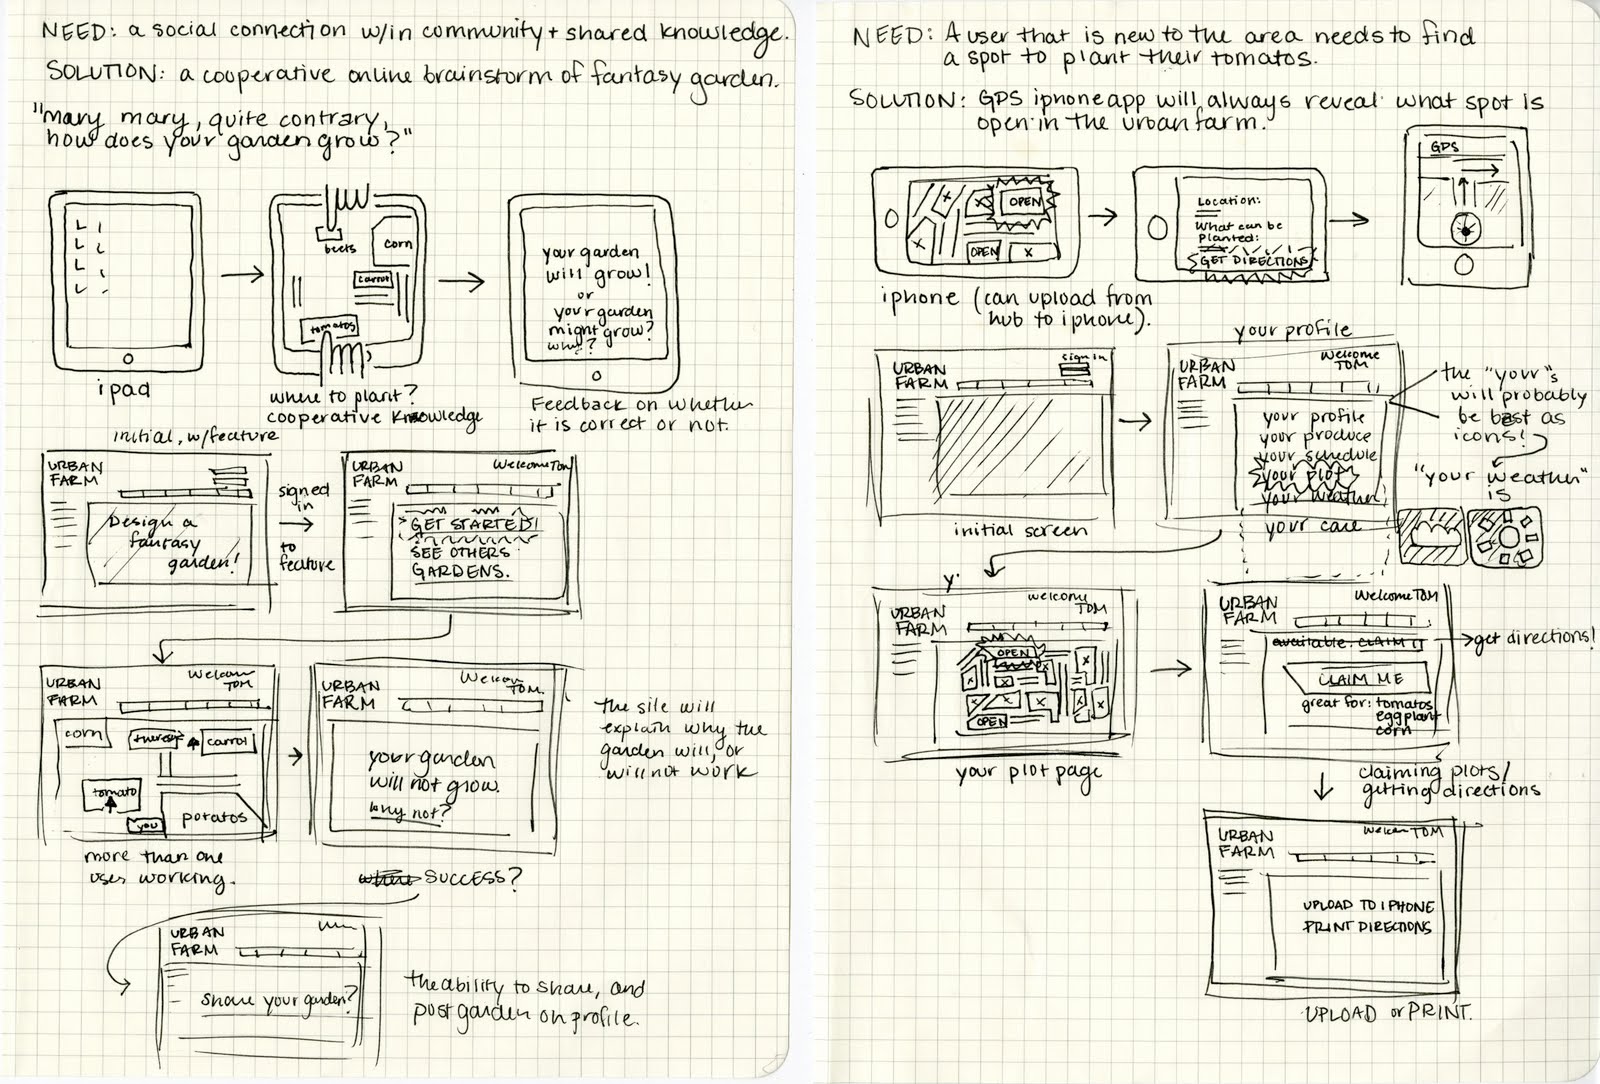 NEED: a social connection w/in community + shared knowledge.
SOLUTION: a cooperative online brainstorm of fantasy garden.
"mary mary, quite contrary,
how does your garden grow?"
ipad
beets
corn
carrot
tomatos
where to plant?
cooperative knowledge
your garden
will grow!
or
your garden
might grow?
why?
Feedback on whether
it is correct or not.
initial, w/feature
URBAN
FARM
Design a
fantasy
garden!
signed
in
to
feature
URBAN
FARM
Welcome Tom
GET STARTED!
SEE OTHERS
GARDENS.
URBAN
FARM
Welcom
TOM
corn
carrot
tomato
you
potatos
more than one
user working.
URBAN
FARM
Welcom
TOM.
your garden
will not grow.
why not?
the site will
explain why the
garden will, or
will not work
SUCCESS?
URBAN
FARM
share your garden?
the ability to share, and
post garden on profile.
NEED: A user that is new to the area needs to find
a spot to plant their tomatos.
SOLUTION: GPS iphone app will always reveal what spot is
open in the urban farm.
X
X
X
OPEN
OPEN
X
iphone (can upload from
hub to iphone).
Location:
What can be
planted:
GET DIRECTIONS
GPS
URBAN
FARM
sign in
initial screen
your profile
URBAN
FARM
Welcome
TOM
your profile
your produce
your schedule
your plot
your weather
your care
the "your"s
will probably
be best as
icons!
"your weather"
is
y.
URBAN
FARM
welcome
TOM
OPEN
X
X
X
X
X
X
X
OPEN
your plot page
URBAN
FARM
Welcome TOM
available. CLAIM it
get directions!
CLAIM ME
great for: tomatos
eggplant
corn
claiming plots/
getting directions
URBAN
FARM
Welcom TOM
UPLOAD TO IPHONE
PRINT DIRECTIONS
UPLOAD or PRINT.